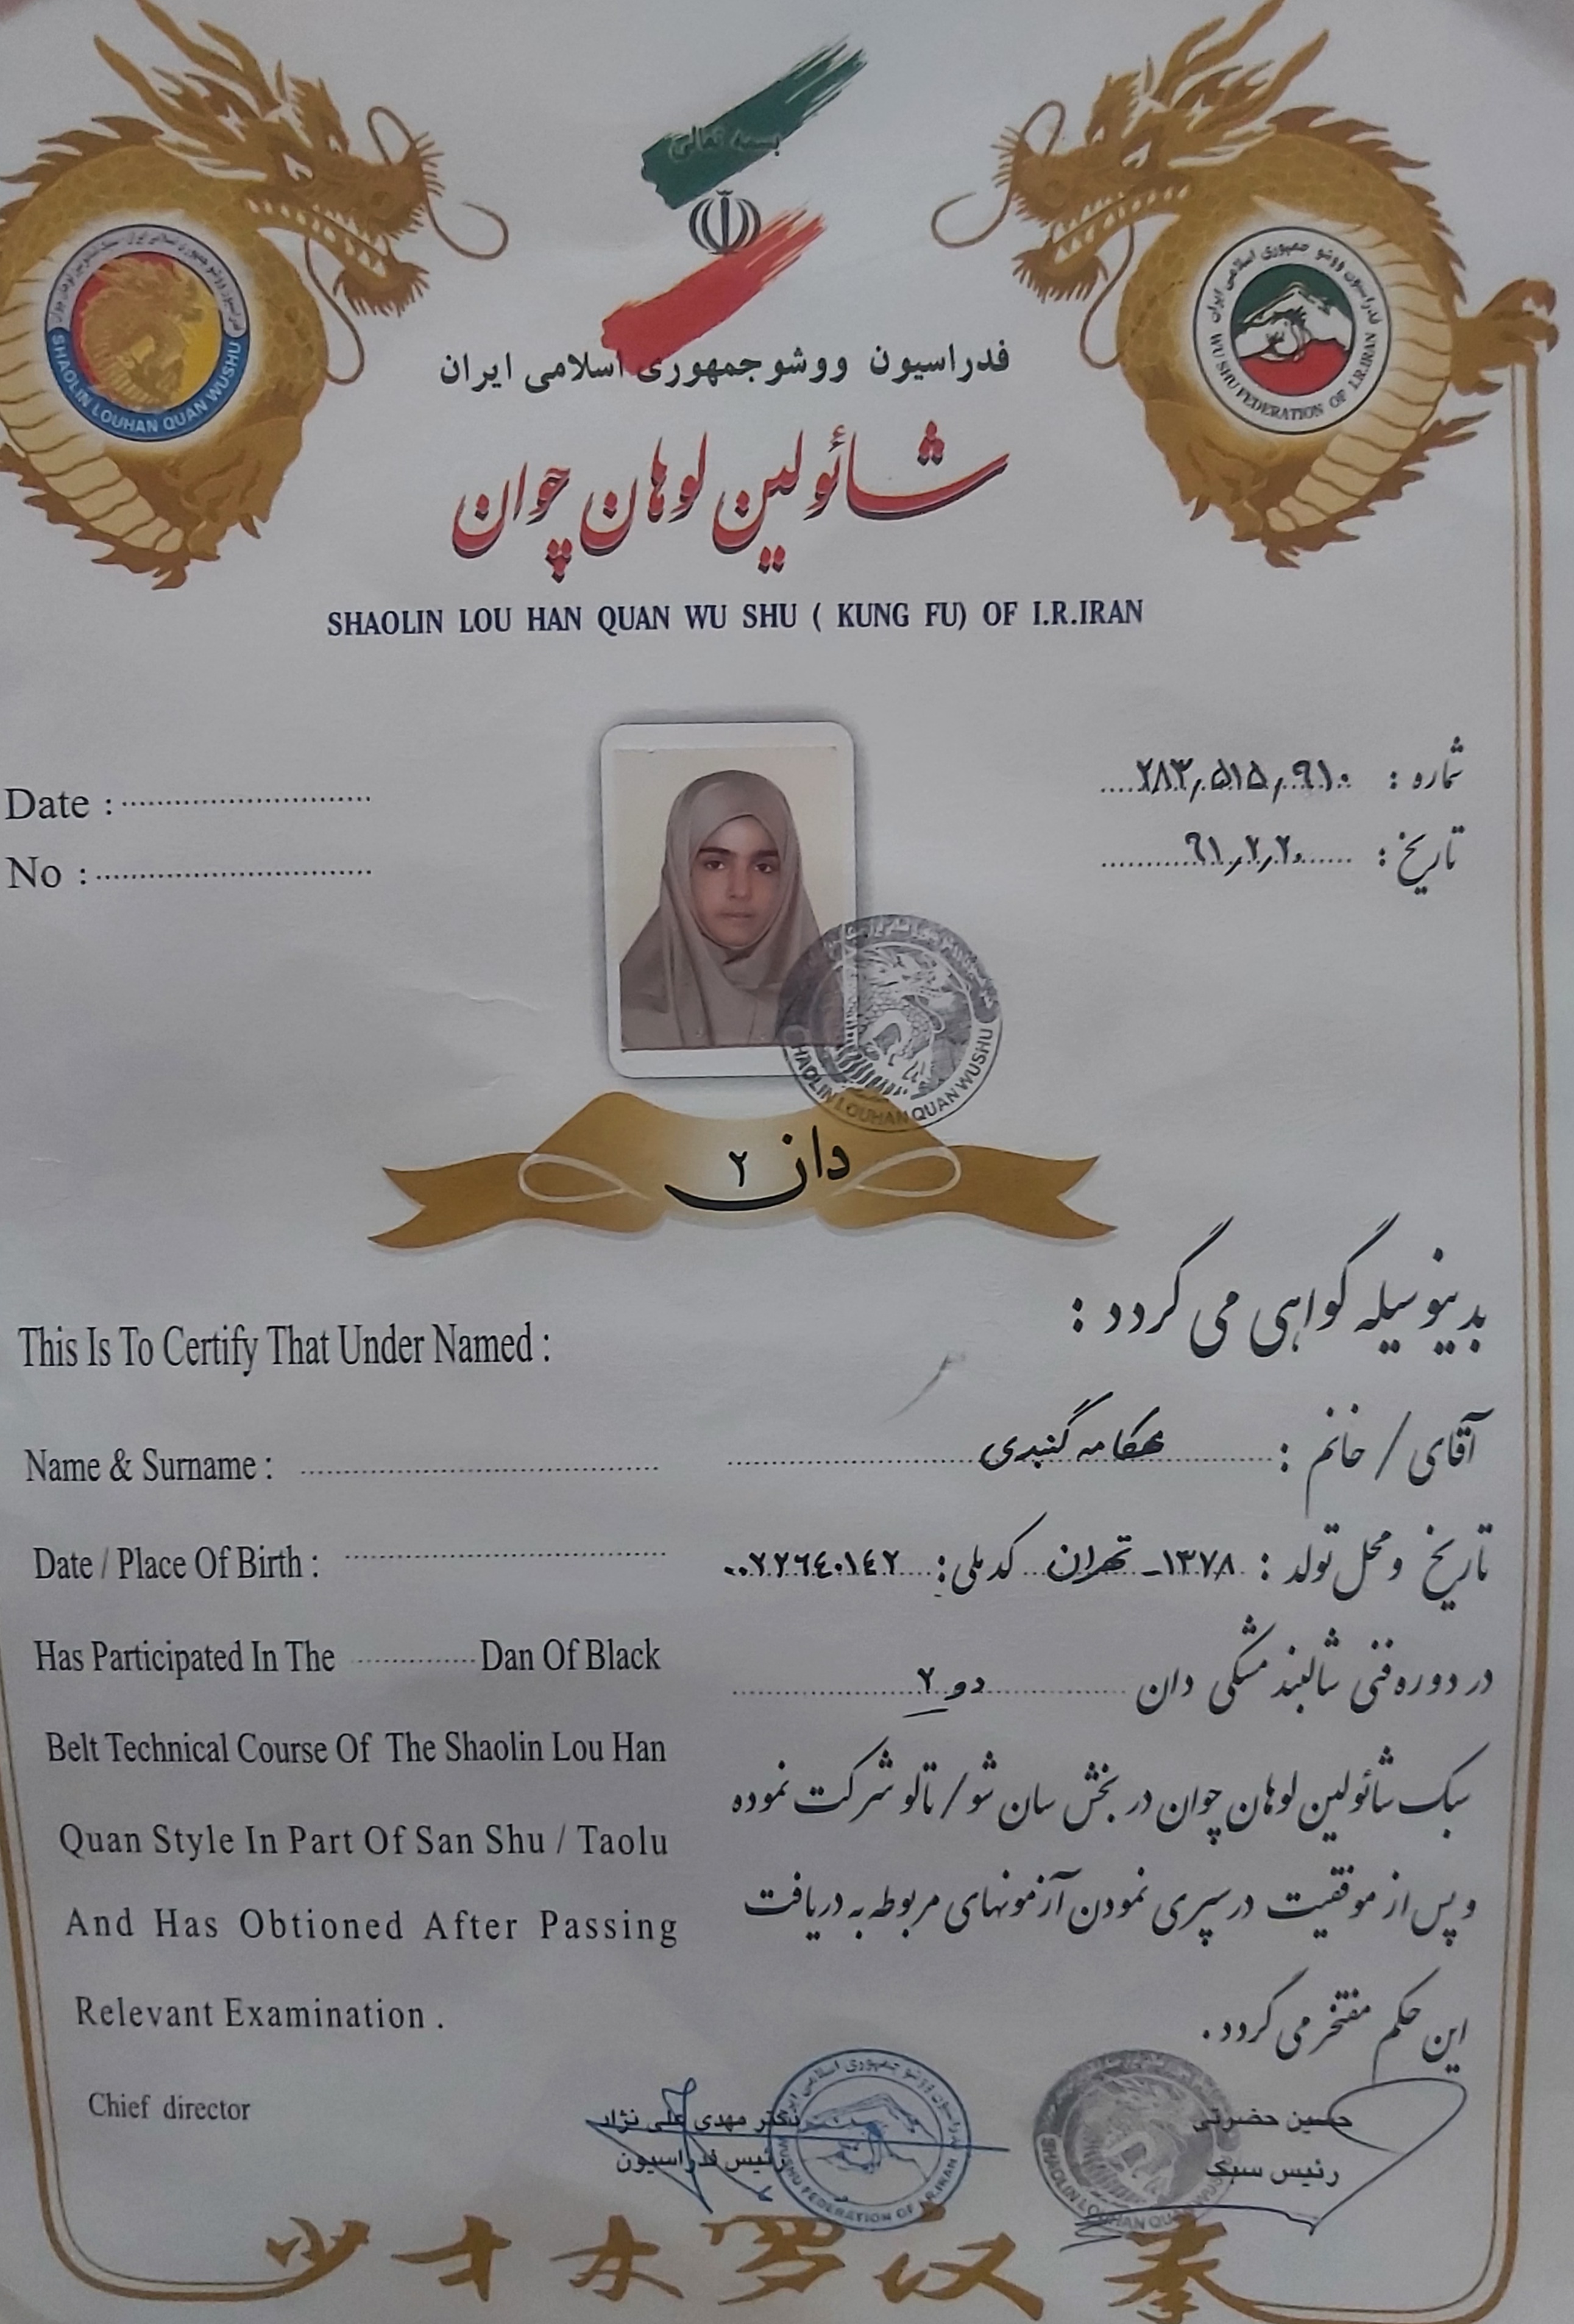 بسمه تعالی
فدراسیون ووشو جمهوری اسلامی ایران
SHAOLIN LOUHAN QUAN WUSHU
فدراسیون ووشو جمهوری اسلامی ایران
WU SHU FEDERATION OF I.R.IRAN
شائولین لوهان چوان
SHAOLIN LOU HAN QUAN WU SHU ( KUNG FU) OF I.R.IRAN
شماره : ۲۸۳,۵۱۵,۹۱۰
تاریخ : ۹۱,۲,۲۰
Date :
No :
SHAOLIN LOUHAN QUAN WUSHU
دان ۲
بدینوسیله گواهی می گردد :
This Is To Certify That Under Named :
آقای / خانم : گنبدی
Name & Surname :
تاریخ و محل تولد : ۱۳۷۸- تهران کد ملی: ۰۰۲۲۶۴۰۱۴۲
Date / Place Of Birth :
در دوره فنی شالبند مشکی دان دو ۲
Has Participated In The Dan Of Black
سبک شائولین لوهان چوان در بخش سان شو / تالو شرکت نموده
Belt Technical Course Of The Shaolin Lou Han
Quan Style In Part Of San Shu / Taolu
و پس از موفقیت در سپری نمودن آزمونهای مربوطه به دریافت
And Has Obtioned After Passing
این حکم مفتخر می گردد .
Relevant Examination .
Chief director
دکتر مهدی علی نژاد
رئیس فدراسیون
فدراسیون ووشو جمهوری اسلامی ایران
WUSHU FEDERATION OF I.R.IRAN
حسین حضرتی
رئیس سبک
SHAOLIN LOUHAN QUAN WUSHU
少林罗汉拳